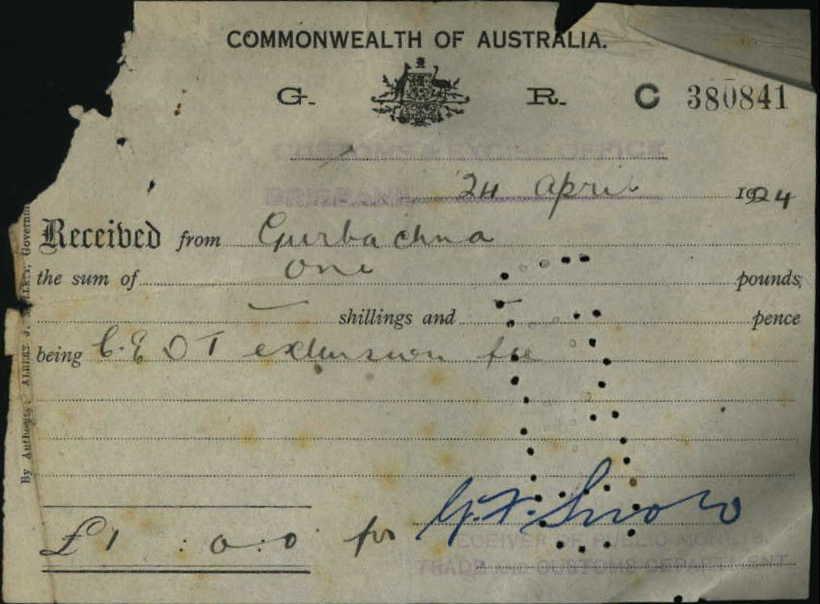 COMMONWEALTH OF AUSTRALIA.
G. R. C 380841
CUSTOMS & EXCISE OFFICE
BRISBANE 24 April 1924
Received from Gurbachna
the sum of One pounds,
— shillings and — pence
being C.E D T extension fee
£1 : 0 : 0 for G.F. Snow
RECEIVER OF PUBLIC MONEYS,
TRADE AND CUSTOMS DEPARTMENT
By Authority: ALBERT J.